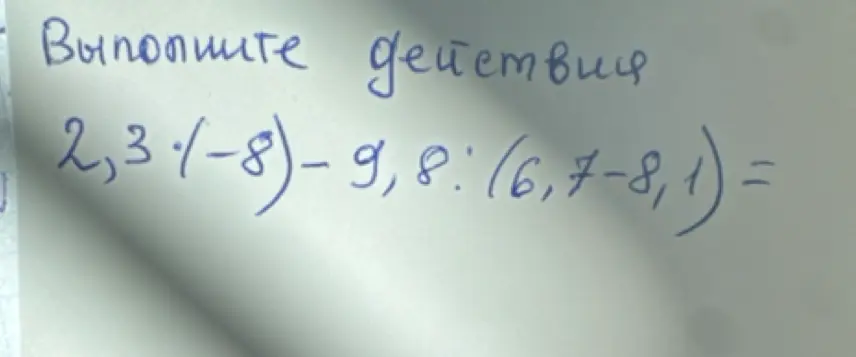 Выполните действия
2,3·(-8)-9,8:(6,7-8,1)=